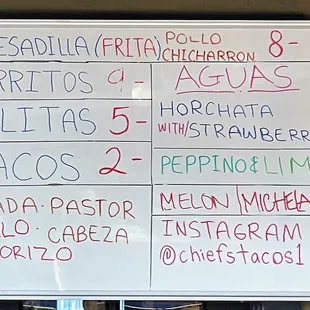 ESADILLA (FRITA) POLLO 8-
CHICHARRON
RRITOS 9-
LITAS 5-
ACOS 2-
ADA · PASTOR
LO · CABEZA
ORIZO
AGUAS
HORCHATA
WITH/STRAWBERR
PEPPINO & LIM
MELON / MICHELA
INSTAGRAM
@chiefstacos1